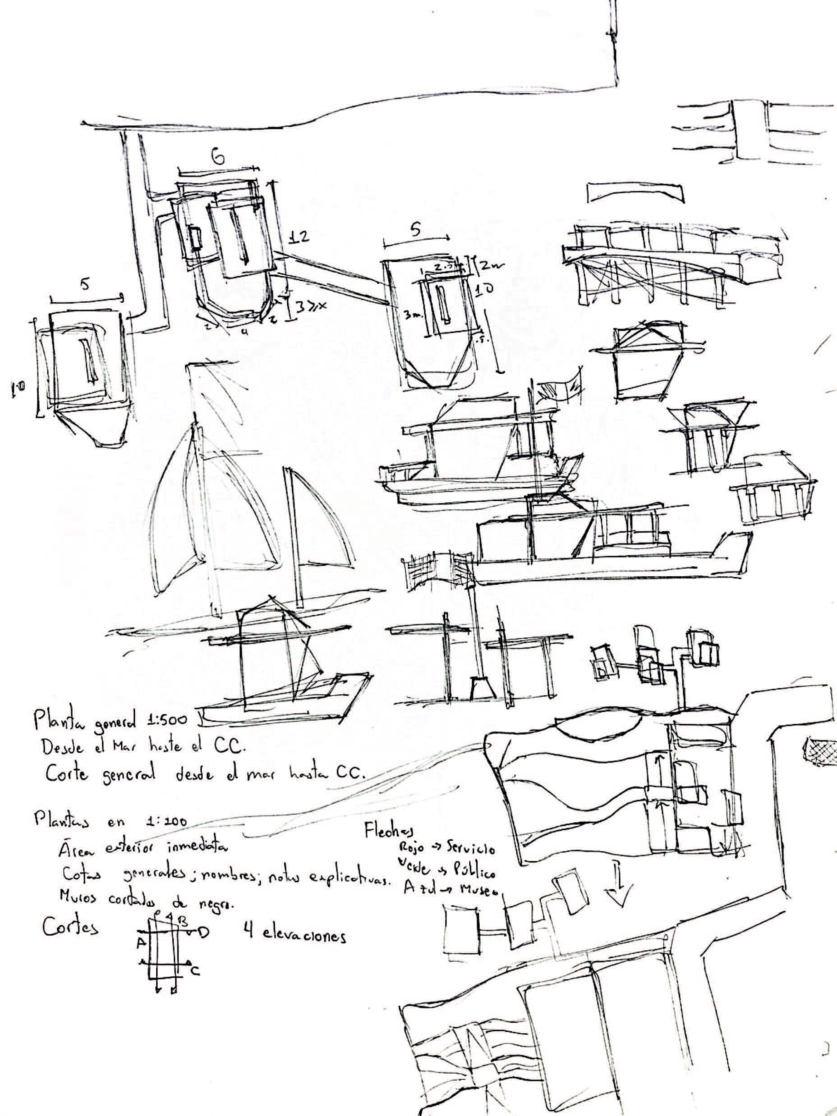 6
12
5
2m
10
3m
3
5
10
Planta general 1:500
Desde el Mar hasta el CC.
Corte general desde el mar hasta CC.
Plantas en 1:100
Área exterior inmediata
Cotas generales; nombres; notas explicativas.
Muros cortados de negro.
Cortes
A
B
D
C
4 elevaciones
Flechas
Rojo → Servicio
Verde → Público
Azul → Museo